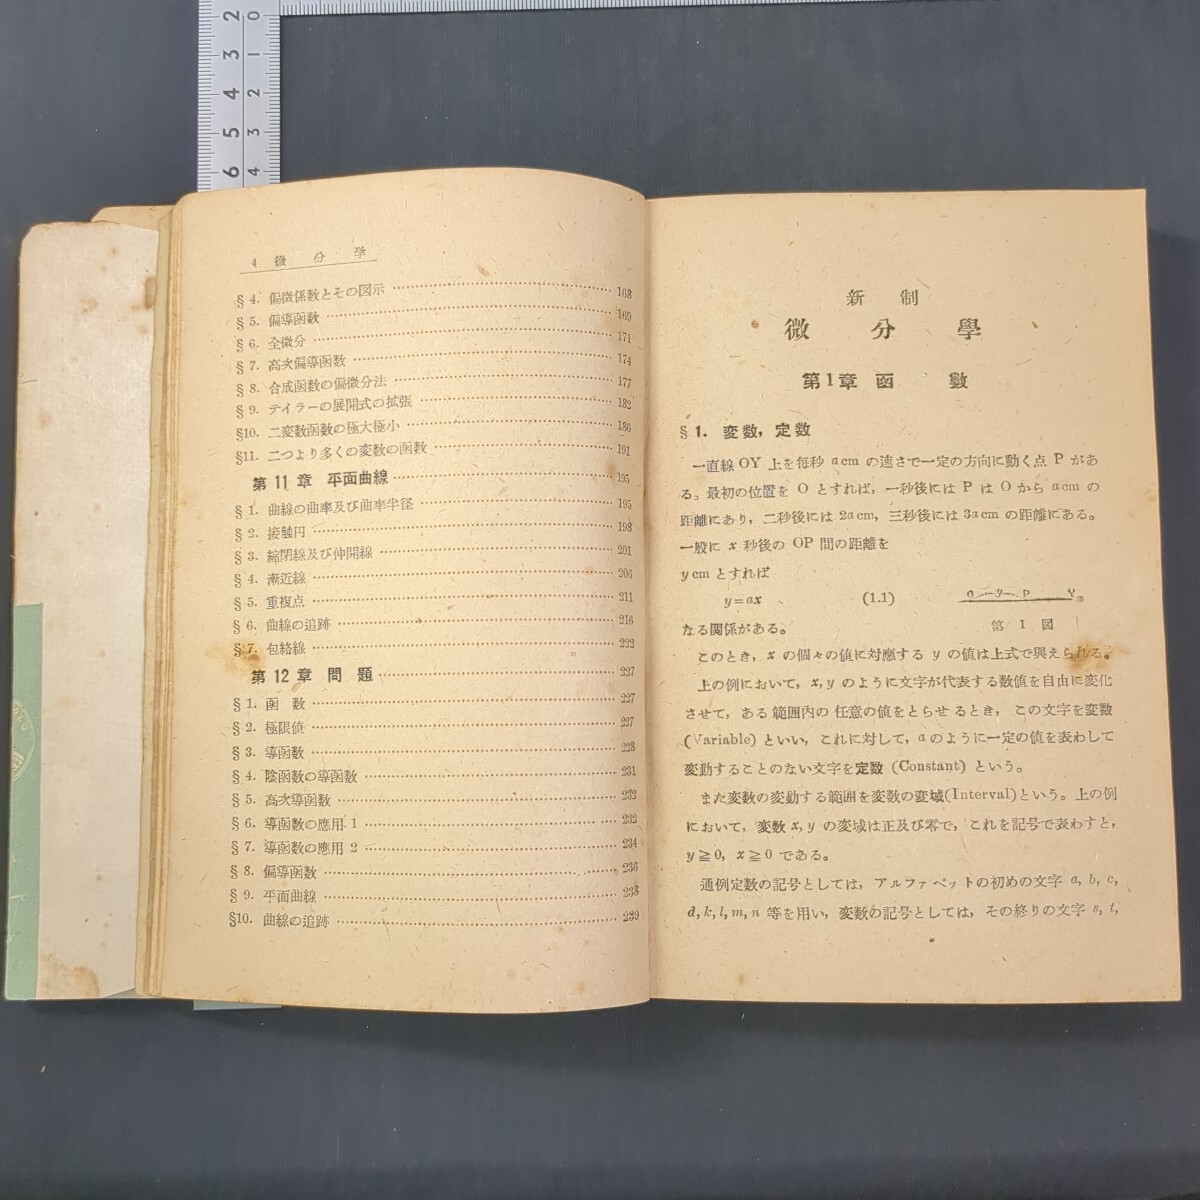 4 微分学
§ 4. 偏微係数とその図示 168
§ 5. 偏導函数 169
§ 6. 全微分 171
§ 7. 高次偏導函数 174
§ 8. 合成函数の偏微分法 177
§ 9. テイラーの展開式の拡張 182
§10. 二変数函数の極大極小 186
§11. 二つより多くの変数の函数 191
第11章 平面曲線 195
§ 1. 曲線の曲率及び曲率半径 195
§ 2. 接触円 198
§ 3. 縮閉線及び伸開線 201
§ 4. 漸近線 206
§ 5. 重複点 211
§ 6. 曲線の追跡 216
§ 7. 包絡線 222
第12章 問題 227
§ 1. 函数 227
§ 2. 極限値 227
§ 3. 導函数 228
§ 4. 陰函数の導函数 231
§ 5. 高次導函数 232
§ 6. 導函数の應用 1 232
§ 7. 導函数の應用 2 234
§ 8. 偏導函数 236
§ 9. 平面曲線 238
§10. 曲線の追跡 239
新制
微分學
第1章 函數
§ 1. 変数,定数
一直線 OY 上を毎秒 a cm の速さで一定の方向に動く点 P があ
る。最初の位置を O とすれば,一秒後には P は O から a cm の
距離にあり,二秒後には 2a cm,三秒後には 3a cm の距離にある。
一般に x 秒後の OP 間の距離を
y cm とすれば
y=ax (1.1)
O y P Y
第1図
なる関係がある。
このとき,x の個々の値に対應する y の値は上式で與えられる。
上の例において,x, y のように文字が代表する数値を自由に変化
させて,ある範囲内の任意の値をとらせるとき,この文字を変数
(Variable) といい,これに対して,a のように一定の値を表わして
変動することのない文字を定数 (Constant) という。
また変数の変動する範囲を変数の変域(Interval)という。上の例
において,変数 x, y の変域は正及び零で,これを記号で表わすと,
y≧0, x≧0 である。
通例定数の記号としては,アルファベットの初めの文字 a, b, c,
d, k, l, m, n 等を用い,変数の記号としては,その終りの文字 s, t,
2 3 4 5 6
0 1 2 3 4